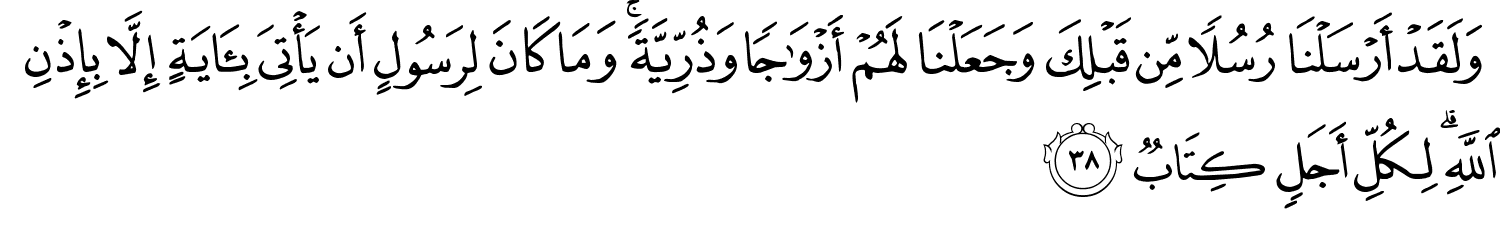 وَلَقَدۡ أَرۡسَلۡنَا رُسُلٗا مِّن قَبۡلِكَ وَجَعَلۡنَا لَهُمۡ أَزۡوَٰجٗا وَذُرِّيَّةٗۚ وَمَا كَانَ لِرَسُولٍ أَن يَأۡتِيَ بِـَٔايَةٍ إِلَّا بِإِذۡنِ
ٱللَّهِۗ لِكُلِّ أَجَلٖ كِتَابٞ ٣٨